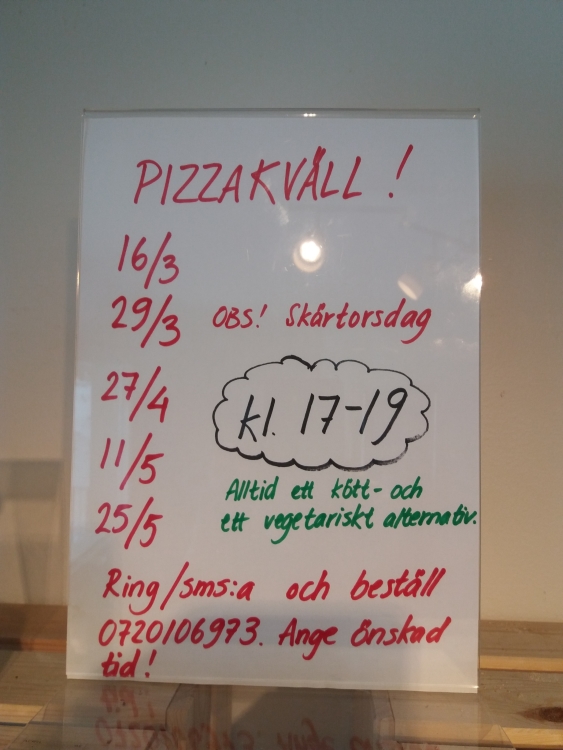 PIZZAKVÄLL!
16/3
29/3 OBS! Skärtorsdag
27/4
kl. 17-19
11/5
Alltid ett kött- och
25/5
ett vegetariskt alternativ.
Ring/sms:a och beställ
0720106973. Ange önskad
tid!